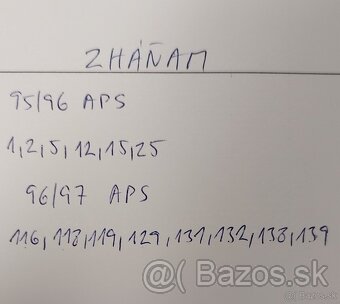 ZHÁŇAM
95/96 APS
1,2,5,12,15,25
96/97 APS
116,118,119,129,131,132,138,139
@ Bazos.sk